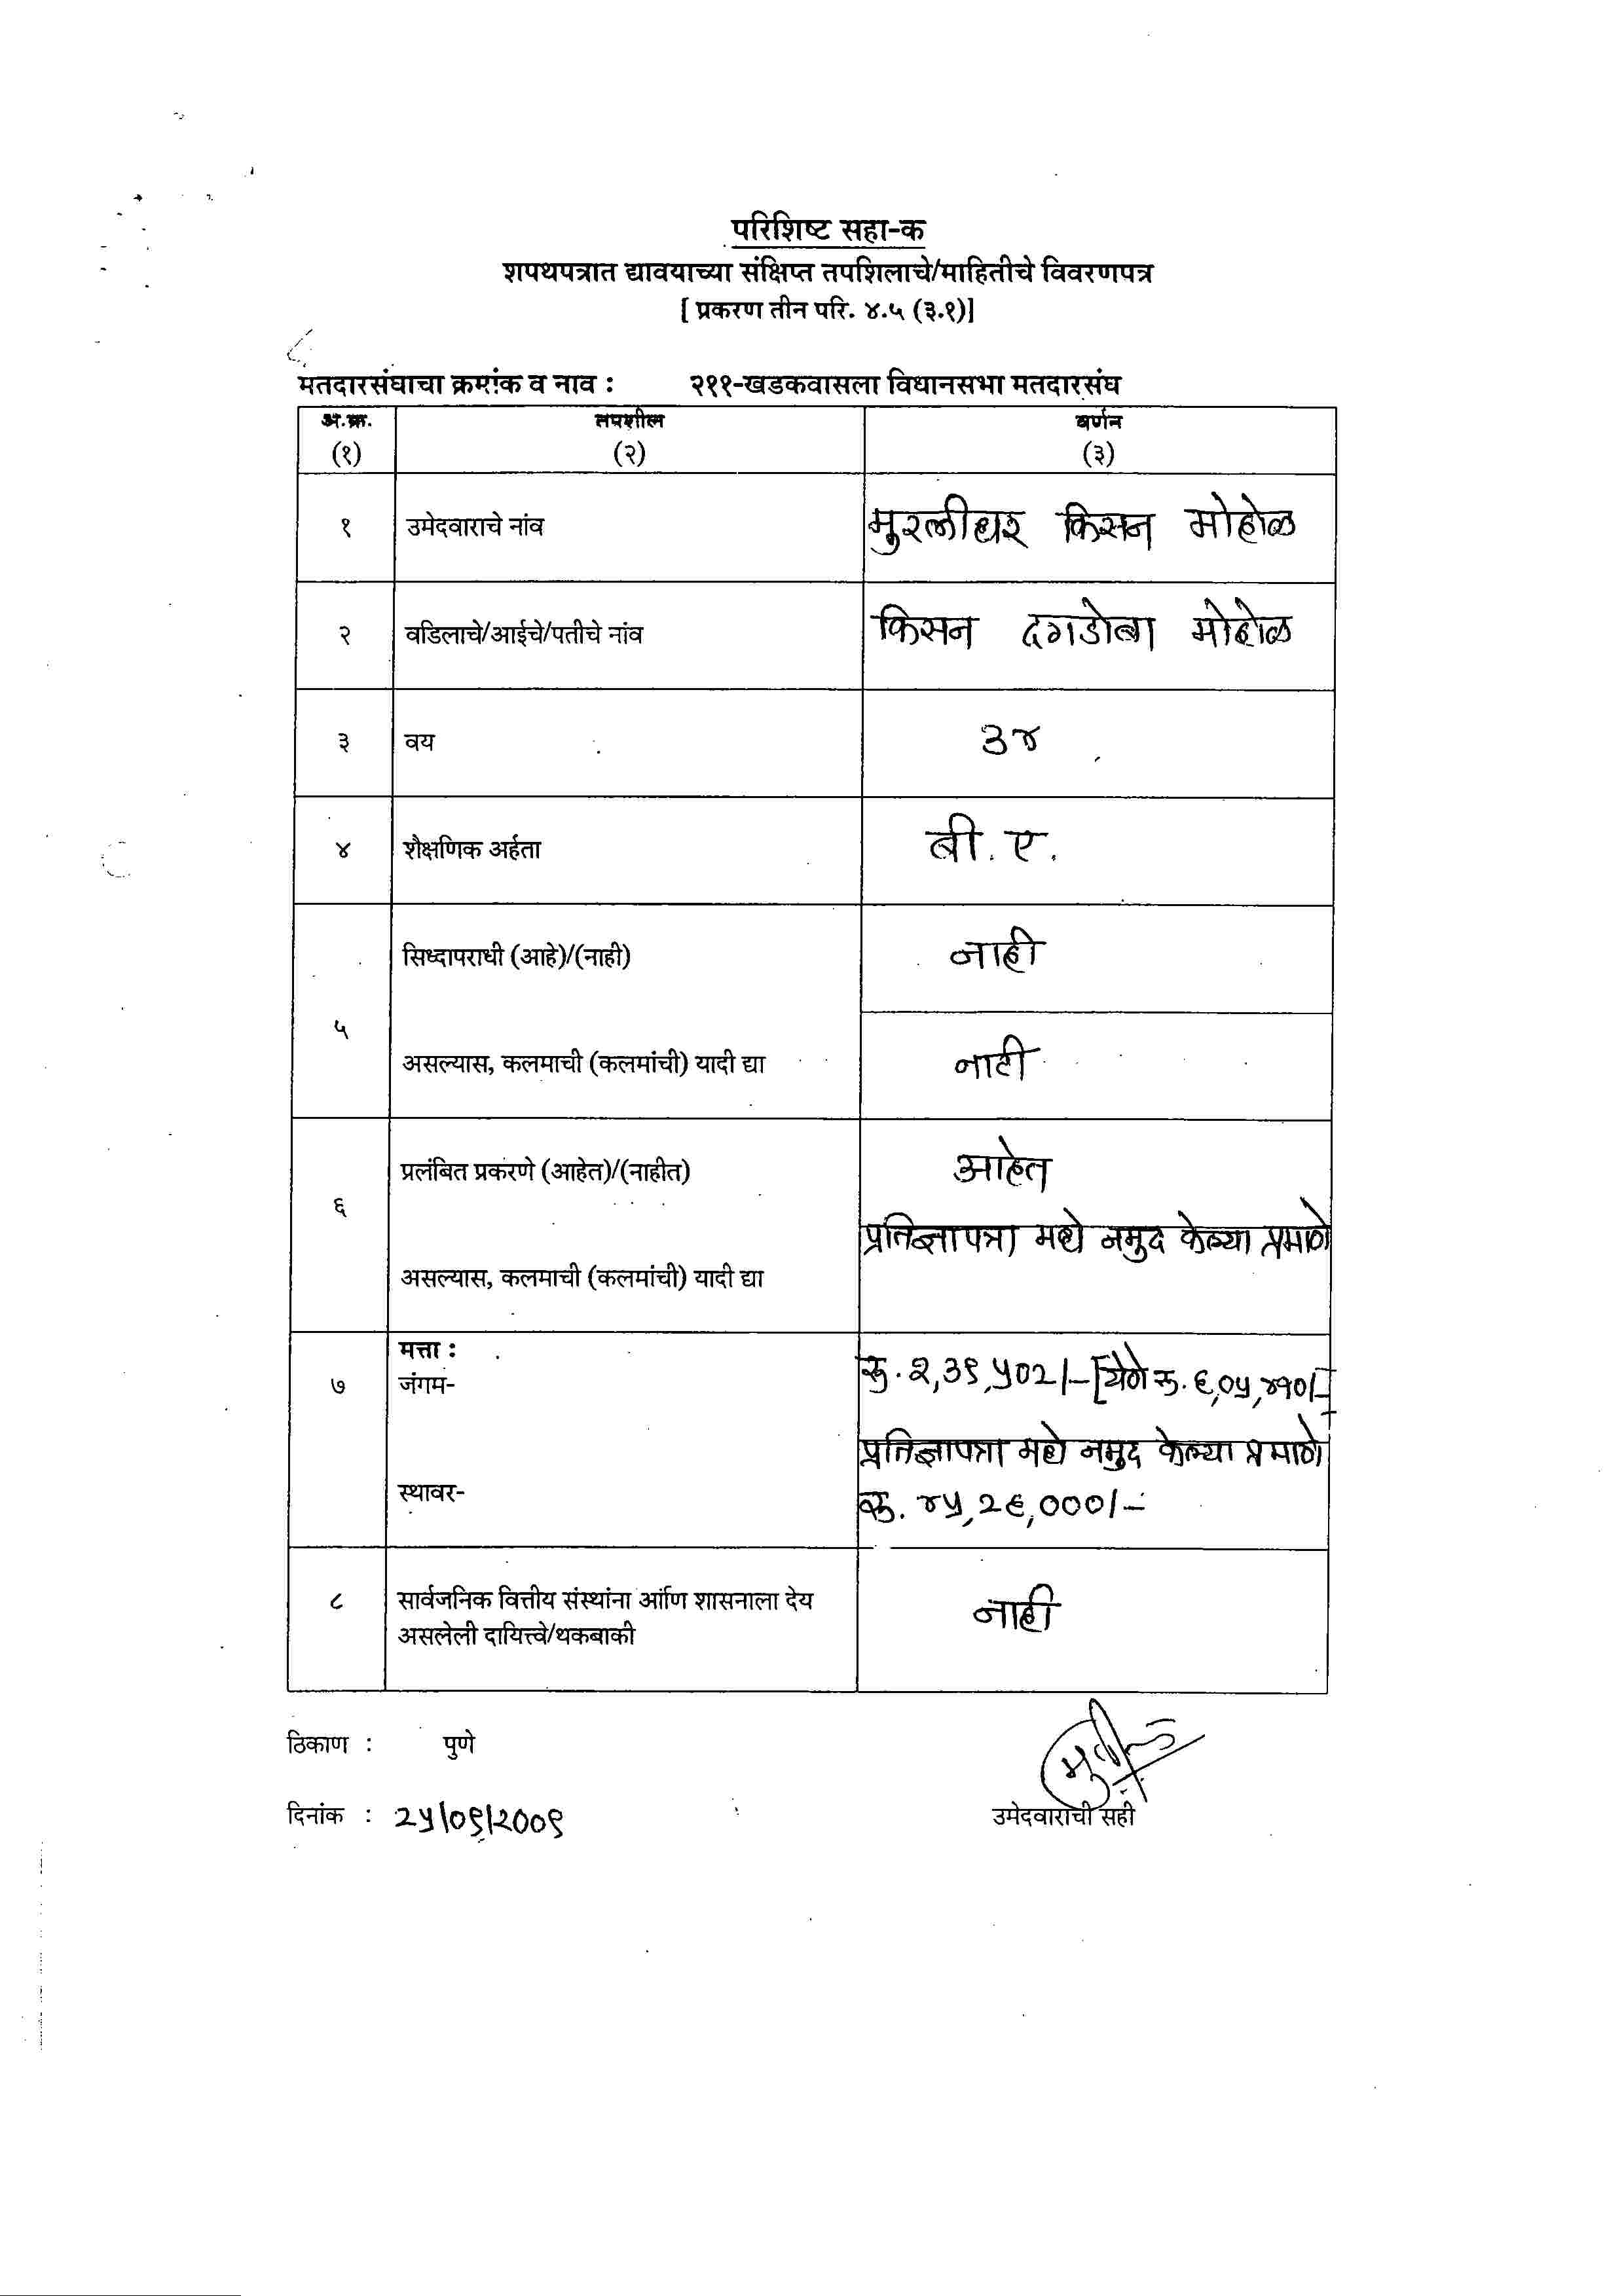 परिशिष्ट सहा-क
शपथपत्रात द्यावयाच्या संक्षिप्त तपशिलाचे/माहितीचे विवरणपत्र
[ प्रकरण तीन परि. ४.५ (३.१)]
मतदारसंघाचा क्रमांक व नाव : २११-खडकवासला विधानसभा मतदारसंघ
अ.क्र. तपशील वर्णन
(१) (२) (३)
१ उमेदवाराचे नांव मुरलीधर किसन मोहोळ
२ वडिलाचे/आईचे/पतीचे नांव किसन दगडोबा मोहोळ
३ वय ३४
४ शैक्षणिक अर्हता बी. ए.
सिध्दापराधी (आहे)/(नाही) नाही
५
असल्यास, कलमाची (कलमांची) यादी द्या नाही
प्रलंबित प्रकरणे (आहेत)/(नाहीत) आहेत
६
प्रतिज्ञापत्रा मध्ये नमुद केल्या प्रमाणे
असल्यास, कलमाची (कलमांची) यादी द्या
मत्ता :
७ जंगम- रू. २,३९,५०२/- [येणे रू. ६,०५,४१०/-
प्रतिज्ञापत्रा मध्ये नमुद केल्या प्रमाणे
स्थावर- रू. ४५,२६,०००/-
८ सार्वजनिक वित्तीय संस्थांना आणि शासनाला देय नाही
असलेली दायित्त्वे/थकबाकी
ठिकाण : पुणे
दिनांक : २५/०९/२००९ उमेदवाराची सही